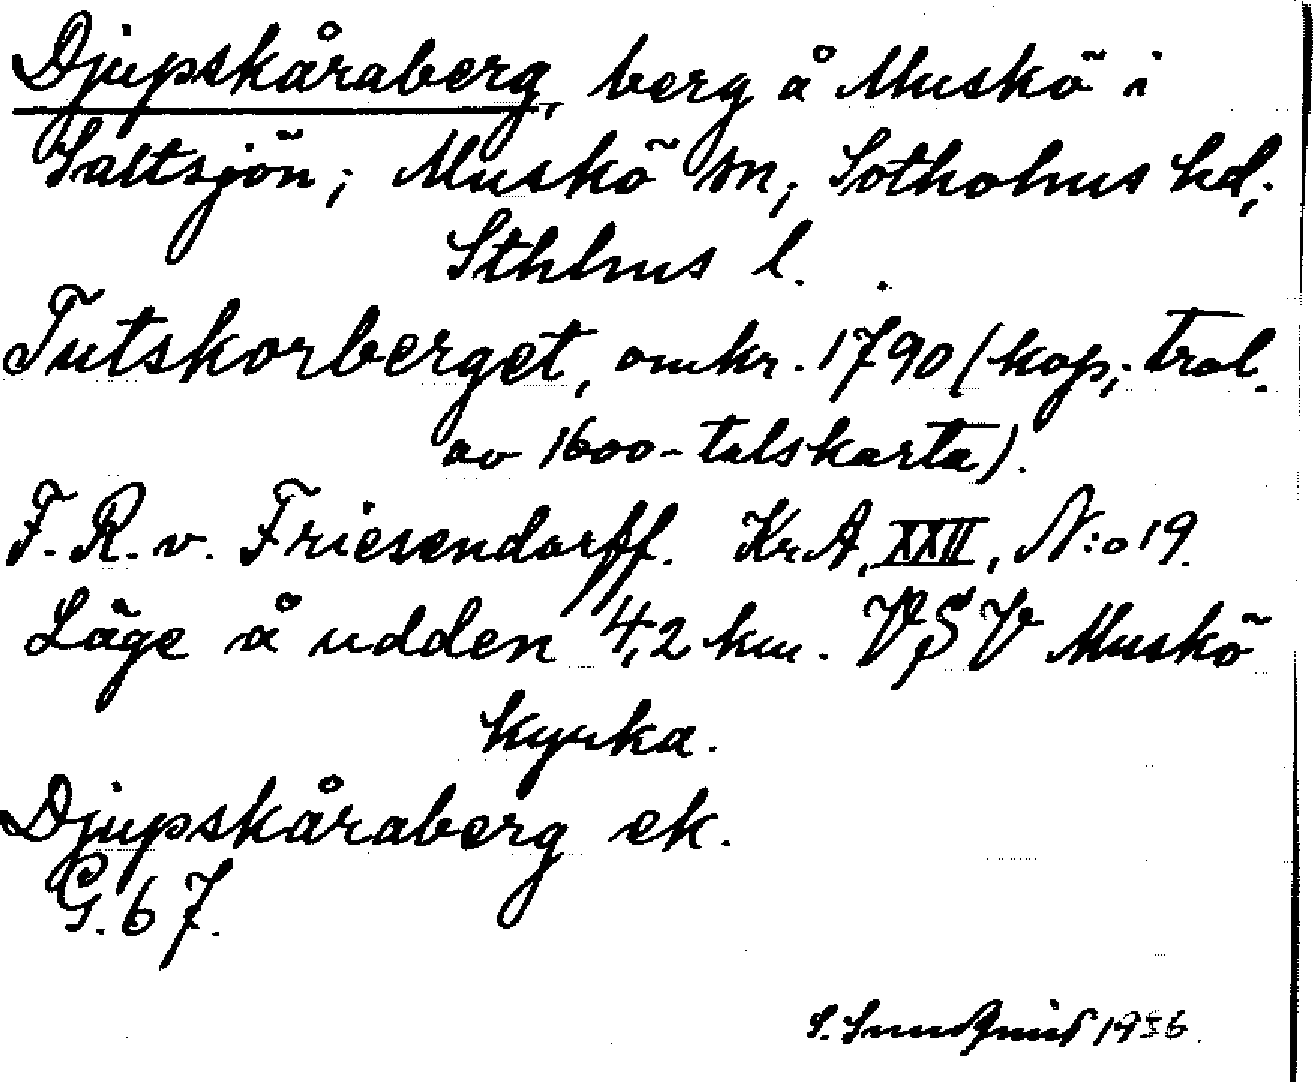 Djupskåraberg, berg å Muskö i
Saltsjön; Muskö sn; Sotholms hd;
Sthlms l.
Tutskorberget, omkr. 1790 (kop; trol.
av 1600-talskarta).
F. R. v. Friesendorff. KrA, XXII, N:o 19.
Läge å udden 4,2 km. VSV Muskö
kyrka.
Djupskåraberg ek.
G. 67.
S. Sundqvist 1936.